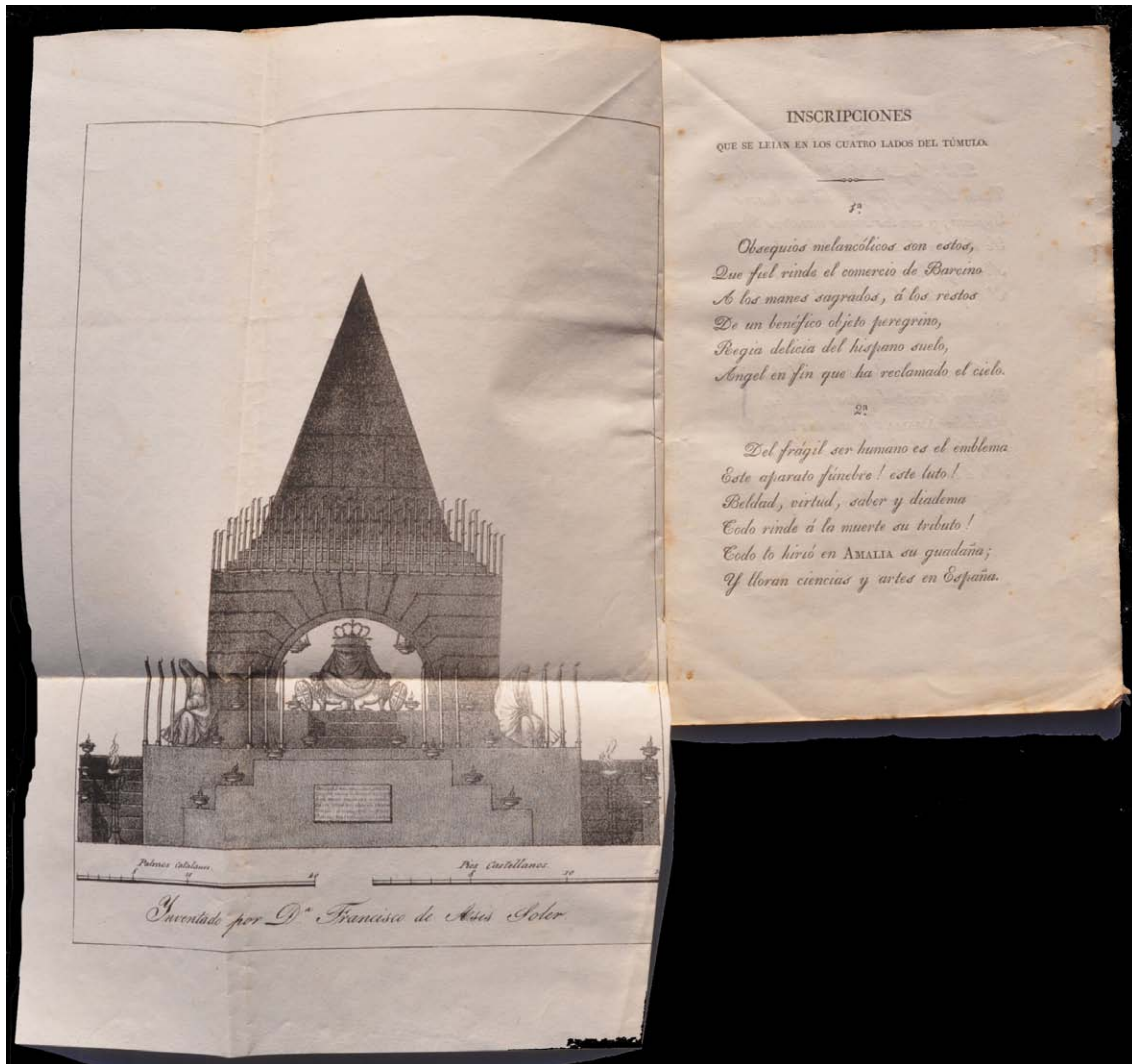 Palmos Catalanes.
5 10 20
Pies Castellanos.
5 10
Ynventado por Dn Francisco de Asis Soler
INSCRIPCIONES
QUE SE LEIAN EN LOS CUATRO LADOS DEL TÚMULO.
1.ª
Obsequios melancólicos son estos,
Que fiel rinde el comercio de Barcino
A los manes sagrados, á los restos
De un benéfico objeto peregrino,
Regia delicia del hispano suelo,
Angel en fin que ha reclamado el cielo.
2.ª
Del frágil ser humano es el emblema
Este aparato fúnebre! este luto!
Beldad, virtud, saber y diadema
Todo rinde á la muerte su tributo!
Todo lo hirió en AMALIA su guadaña;
Y lloran ciencias y artes en España.